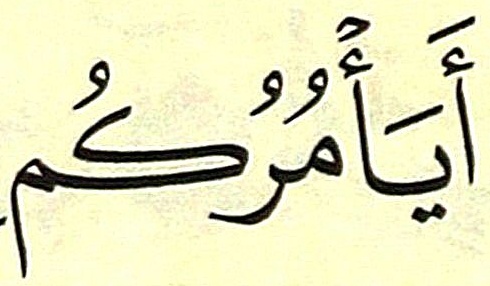 أَيَأۡمُرُكُم